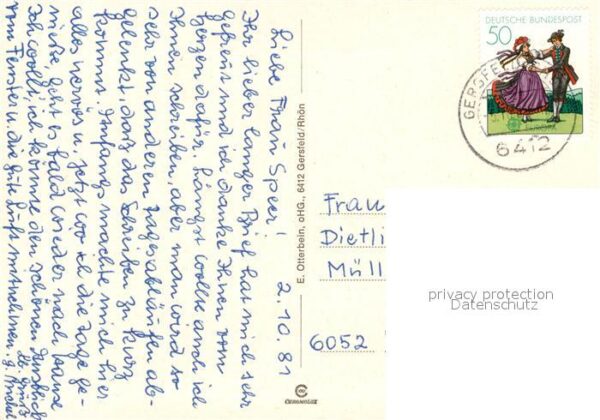 2.10.81
Liebe Frau Speer!
Ihr lieber langer Brief hat mich sehr
gefreut und ich danke Ihnen von
Herzen dafür. Längst wollte auch ich
Ihnen schreiben, aber man wird so
sehr von anderen Tagesabläufen ab-
gelenkt, daß das Schreiben zu kurz
kommt. Anfangs machte mich hier
alles nervös u. jetzt wo ich die Tage ge-
nieße, geht es bald wieder nach Hause
Ich wollt, ich könnte den schönen Ausblick
vom Fenster u. die gute Luft mitnehmen.
E. Otterbein, oHG., 6412 Gersfeld/Rhön
DEUTSCHE BUNDESPOST
50
GERSFE
6412
Frau
Dietli
Müll
6052
privacy protection
Datenschutz